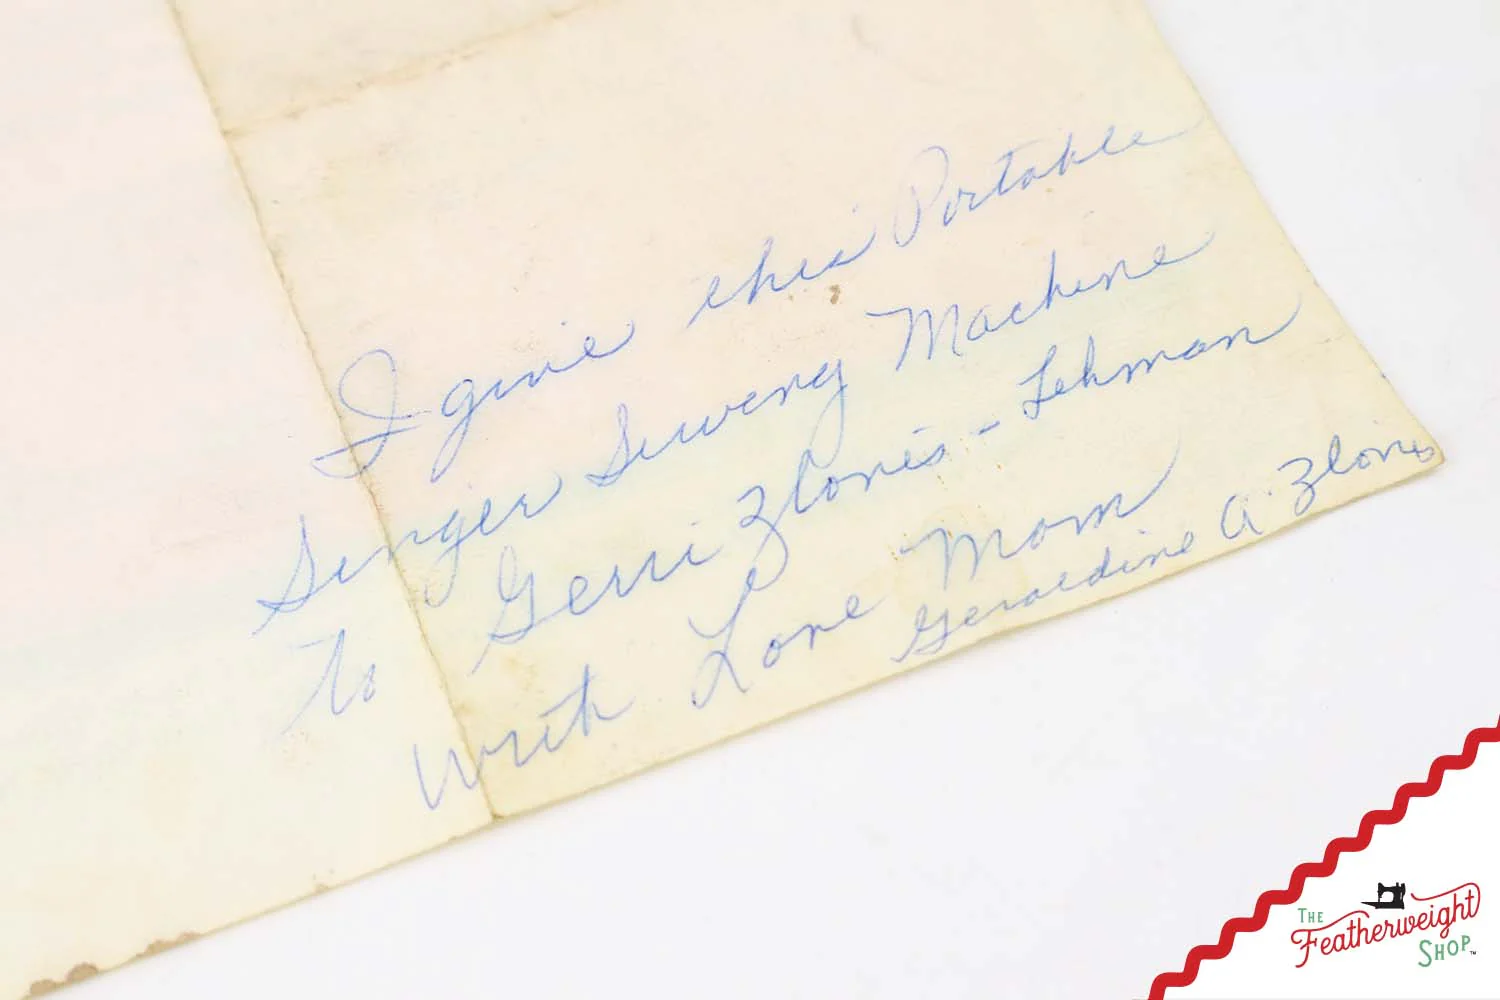 I give this Portable
Singer Sewing Machine
to Gerri Zlonis - Lehman
with Love Mom
Geraldine A. Zlonis
THE
Featherweight
SHOP™